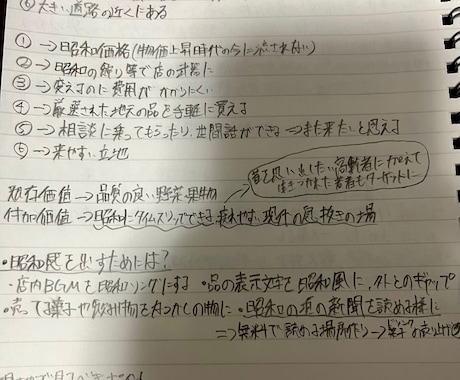 ⑥大きい道路の近くにある
①→昭和価格(物価上昇時代の今に流されない)
②→昭和の縛り等で店の武器に
③→変えるのに費用がかかりにくい
④→厳選された地元の品を手軽に買える
⑤→相談に乗ってもらったり、世間話ができる→また来たいと思える
⑥→来やすい立地
昔を思い出したい高齢者に加えて
生きつかれた若者もターゲットに
既存価値→品質の良い野菜・果物
付加価値→昭和にタイムスリップできる、疲れやすい現代の息抜きの場
・昭和感を出すためには?
・店内BGMを昭和ソングにする ・品の表示文字を昭和風に、外とのギャップ
・売ってる菓子や飲み物をなつかしの物に ・昭和の頃の新聞を読める様に
⇒無料で読める場所作り→菓子の売り上げ